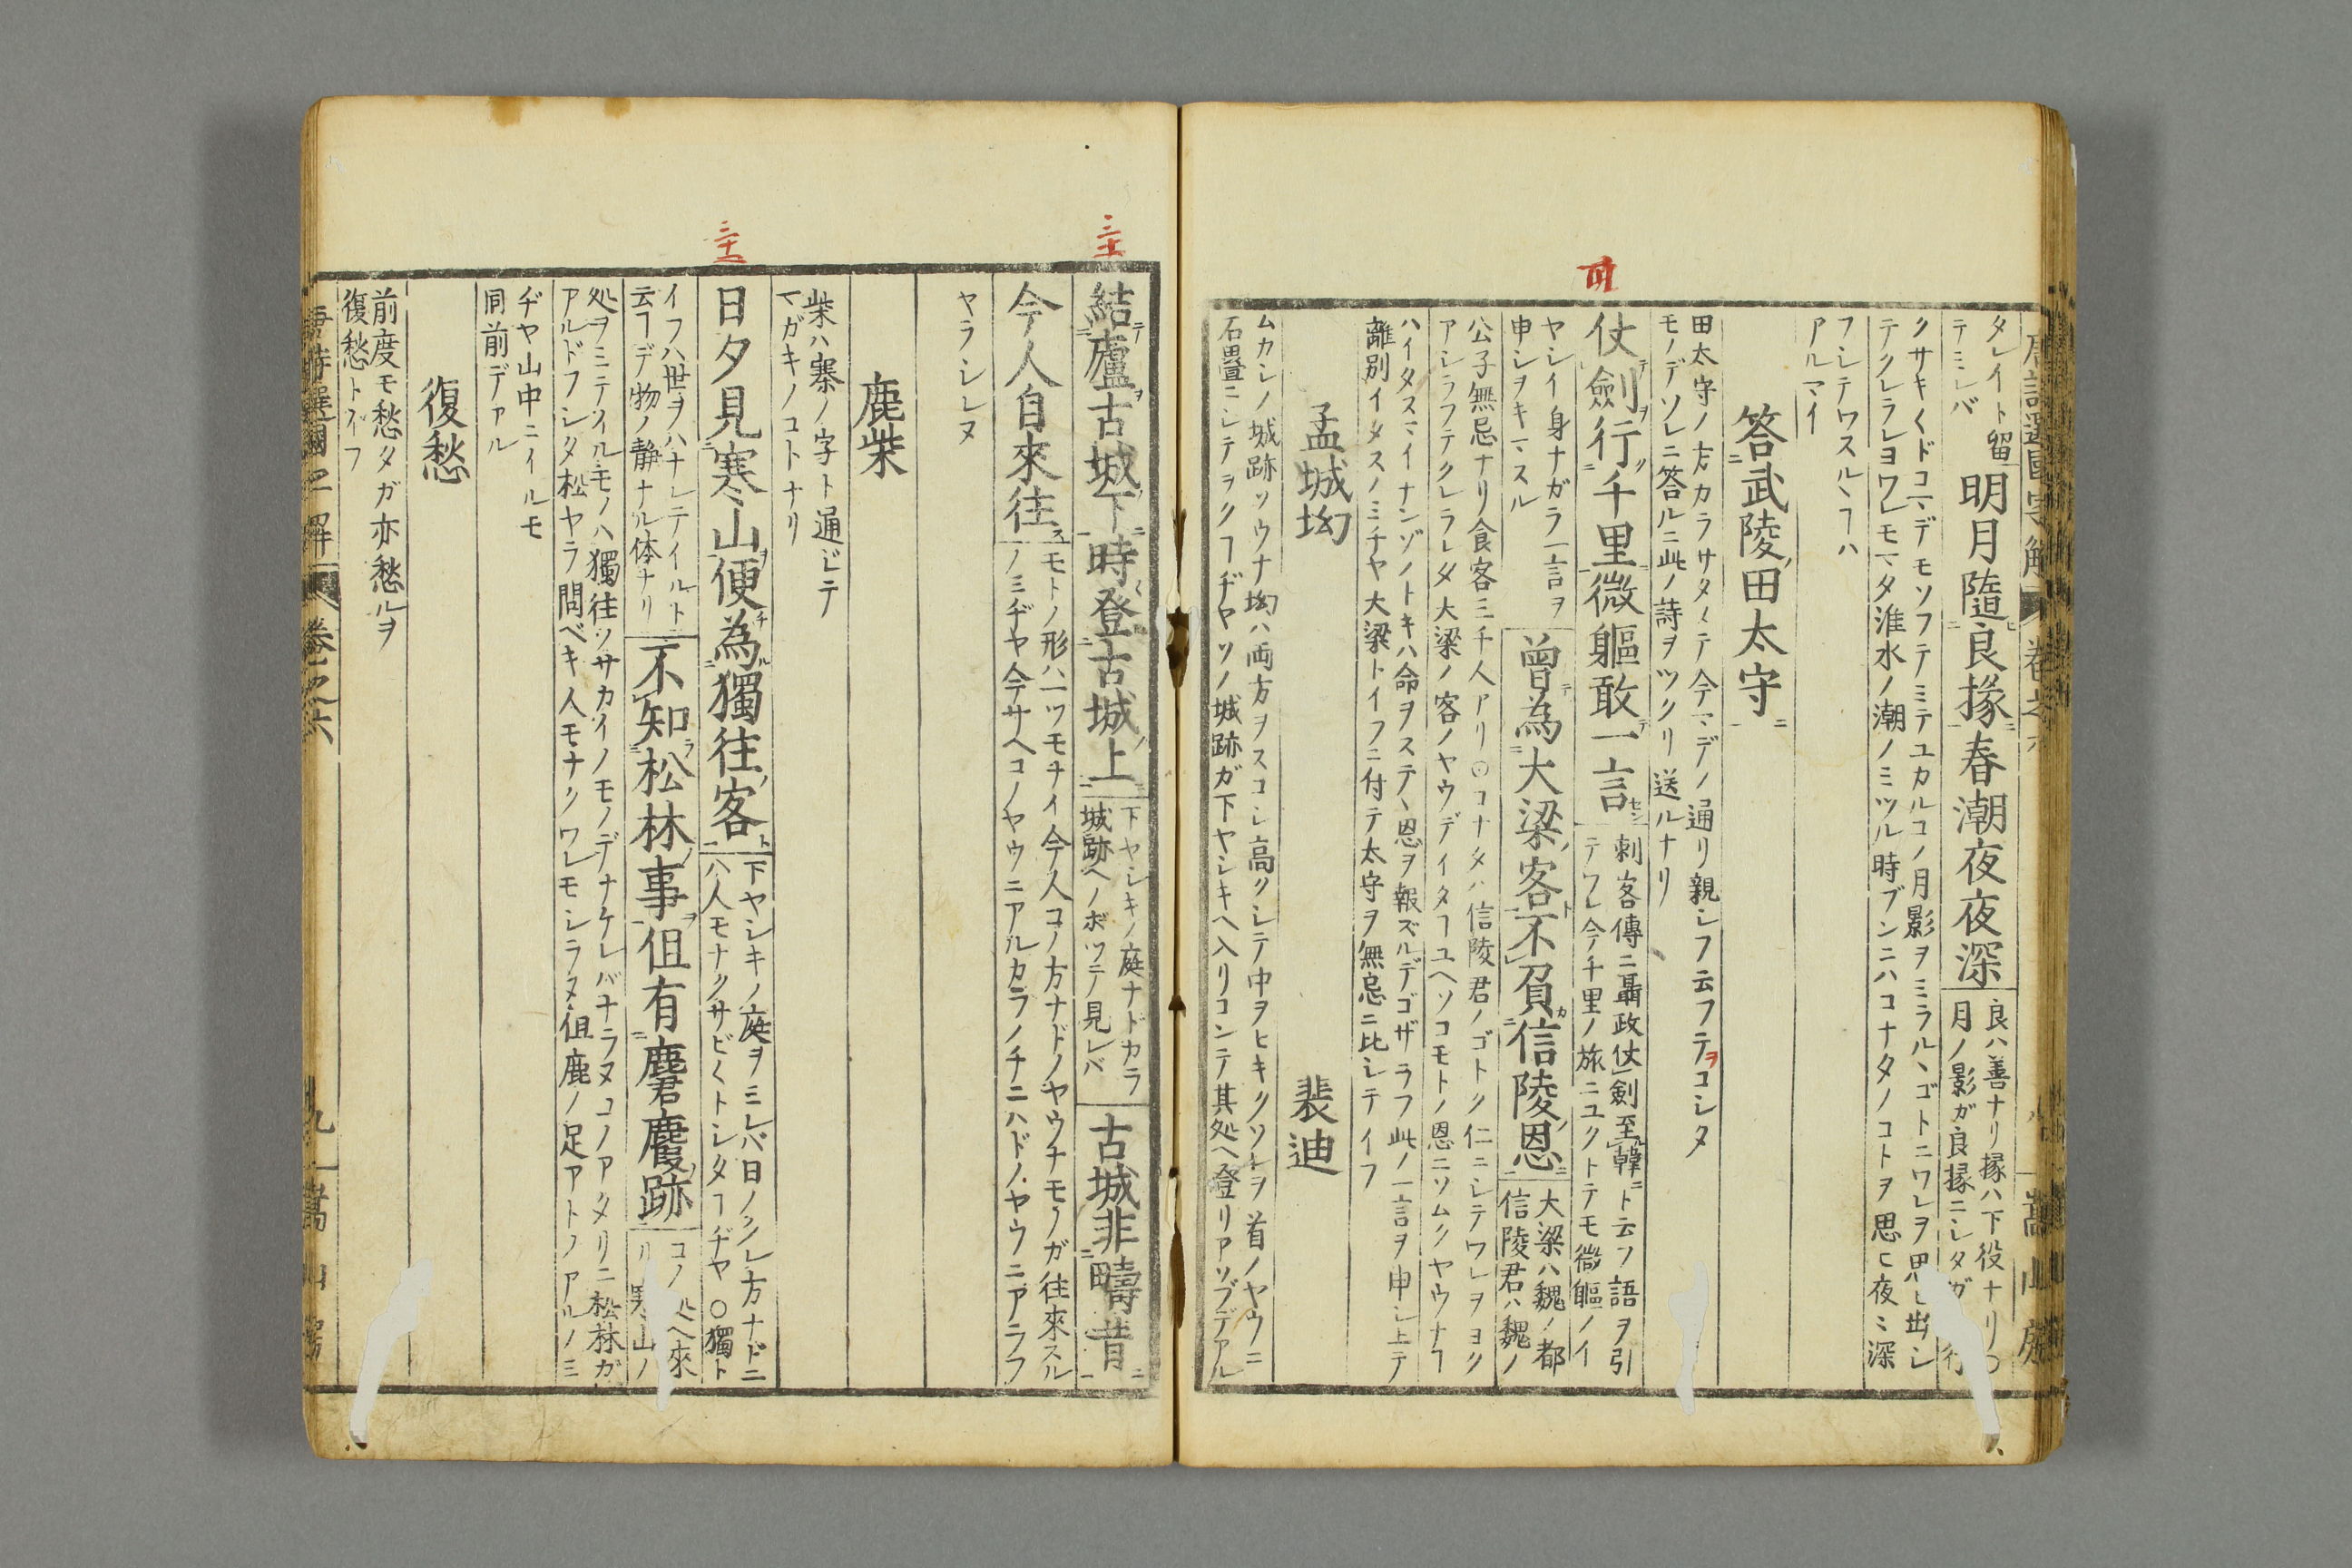 唐詩選國字解 卷之六 嵩山房
タレイト留
テミレバ
明月隨良掾春潮夜夜深
良ハ善ナリ掾ハ下役ナリ○
月ノ影ガ良掾ニシタガ 行
クサキ〱ドコマデモソフテミテユカルコノ月影ヲミラルヽゴトニワレヲ思ヒ出シ
テクレラレヨワレモマタ淮水ノ潮ノミツル時ブンニハコナタノコトヲ思ヒ夜ミ深
フシテワスルヽヿハ
アルマイ
答武陵田太守
田太守ノ方カラサタメテ今マデノ通リ親シフ云フテヲコシタ
モノデソレニ答ルニ此ノ詩ヲツクリ送ルナリ
仗劍行千里微軀敢一言
刺客傳ニ聶政仗劍至韓ト云フ語ヲ引
テワレ今千里ノ旅ニユクトテモ微軀ノイ
ヤシイ身ナガラ一言ヲ
申シヲキマスル
曾為大梁客不負信陵恩
大梁ハ魏ノ都
信陵君ハ魏ノ
公子無忌ナリ食客三千人アリ○コナタハ信陵君ノゴトク仁ニシテワレヲヨク
アシラフテクレラレタ大梁ノ客ノヤウデイタヿユヘソコモトノ恩ニソムクヤウナヿ
ハイタスマイナンゾノトキハ命ヲステヽ恩ヲ報ズルデゴザラフ此ノ一言ヲ申シ上テ
離別イタスノミチヤ大梁トイフニ付テ太守ヲ無忌ニ比シテイフ
孟城坳 裴迪
ムカシノ城跡ソウナ坳ハ両方ヲスコシ高クシテ中ヲヒキクソレヲ首ノヤウニ
石畳ニシテヲクヿヂヤソノ城跡ガ下ヤシキヘ入リコンテ其処ヘ登リアソブデアル
結廬古城下時登古城上
下ヤシキノ庭ナドカラ
城跡ヘノボツテ見レバ
古城非疇昔
今人自來往
モトノ形ハ一ツモナイ今人コノ方ナドノヤウナモノガ往來スル
ノミヂヤ今サヘコノヤウニアルカラノチニハドノヤウニアラフ
ヤラシレヌ
鹿柴
柴ハ寨ノ字ト通ジテ
マガキノコトナリ
日夕見寒山便為獨往客
下ヤシキノ庭ヲミレバ日ノクレ方ナドニ
ハ人モナクサビ〱トシタヿヂヤ○獨ト
イフハ世ヲハナレテイルト
云ヿデ物ノ静ナル体ナリ
不知松林事但有麏麚跡
コノ処ヘ來
リ寒山ノ
処ヲミテイルモノハ獨往ツサカイノモノデナケレバナラヌコノアタリニ松林ガ
アルドフシタ松ヤラ問ベキ人モナクワレモシラヌ但鹿ノ足アトノアルノミ
ヂヤ山中ニイルモ
同前デアル
復愁
前度モ愁タガ亦愁ルヲ
復愁トイフ
唐詩選國字解 卷之六 九 嵩山房
三十
三十一